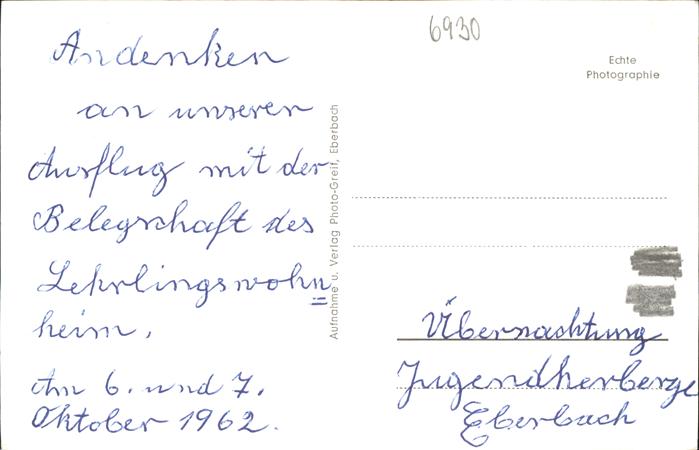 6930
Echte
Photographie
Andenken
an unseren
Ausflug mit der
Belegschaft des
Lehrlingswohn=
heim,
Am 6. und 7.
Oktober 1962.
Aufnahme u. Verlag Photo-Greif, Eberbach
Übernachtung
Jugendherberge
Eberbach